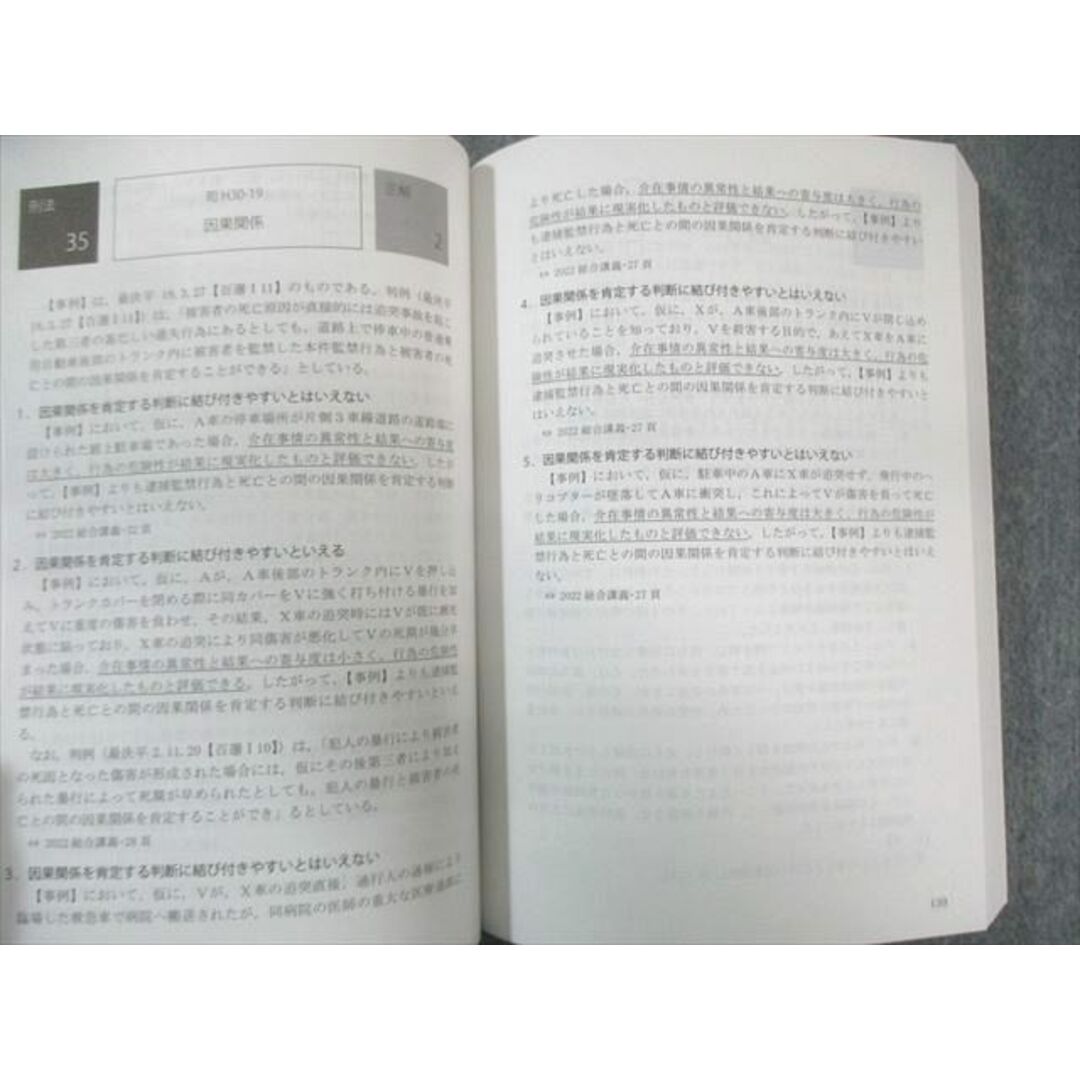 刑法
35
司H30-19
因果関係
正解
2
【事例】は，最決平 18.3.27【百選Ⅰ11】のものである。判例（最決平
18.3.27【百選Ⅰ11】）は，「被害者の死亡原因が直接的には追突事故を起こ
した第三者の甚だしい過失行為にあるとしても，道路上で停車中の普通乗
用自動車後部のトランク内に被害者を監禁した本件監禁行為と被害者の死
亡との間の因果関係を肯定することができる」としている。
1．因果関係を肯定する判断に結び付きやすいとはいえない
【事例】において，仮に，A車の停車場所が片側3車線道路の道路端に
設けられた路上駐車場であった場合，介在事情の異常性と結果への寄与度
は大きく，行為の危険性が結果に現実化したものと評価できない。したが
って，【事例】よりも逮捕監禁行為と死亡との間の因果関係を肯定する判断
に結び付きやすいとはいえない。
⇔ 2022 総合講義-22 頁
2．因果関係を肯定する判断に結び付きやすいといえる
【事例】において，仮に，Aが，A車後部のトランク内にVを押し込
み，トランクカバーを閉める際に同カバーをVに強く打ち付ける暴行を加
えてVに重度の傷害を負わせ，その結果，X車の追突時にはVが既に瀕死
状態に陥っており，X車の追突により同傷害が悪化してVの死期が幾分早
まった場合，介在事情の異常性と結果への寄与度は小さく，行為の危険性
が結果に現実化したものと評価できる。したがって，【事例】よりも逮捕監
禁行為と死亡との間の因果関係を肯定する判断に結び付きやすいといえ
る。
なお，判例（最決平 2.11.20【百選Ⅰ10】）は，「犯人の暴行により被害者
の死因となった傷害が形成された場合には，仮にその後第三者により加え
られた暴行によって死期が早められたとしても，犯人の暴行と被害者の死
亡との間の因果関係を肯定することができ」るとしている。
⇔ 2022 総合講義-28 頁
3．因果関係を肯定する判断に結び付きやすいとはいえない
【事例】において，仮に，Vが，X車の追突直後，通行人の通報により
臨場した救急車で病院へ搬送されたが，同病院の医師の重大な医療過誤に
より死亡した場合，介在事情の異常性と結果への寄与度は大きく，行為の
危険性が結果に現実化したものと評価できない。したがって，【事例】より
も逮捕監禁行為と死亡との間の因果関係を肯定する判断に結び付きやすい
とはいえない。
⇔ 2022 総合講義-27 頁
4．因果関係を肯定する判断に結び付きやすいとはいえない
【事例】において，仮に，Xが，A車後部のトランク内にVが閉じ込め
られていることを知っており，Vを殺害する目的で，あえてX車をA車に
追突させた場合，介在事情の異常性と結果への寄与度は大きく，行為の危
険性が結果に現実化したものと評価できない。したがって，【事例】よりも
逮捕監禁行為と死亡との間の因果関係を肯定する判断に結び付きやすいと
はいえない。
⇔ 2022 総合講義-27 頁
5．因果関係を肯定する判断に結び付きやすいとはいえない
【事例】において，仮に，駐車中のA車にX車が追突せず，飛行中のヘ
リコプターが墜落してA車に衝突し，これによってVが傷害を負って死亡
した場合，介在事情の異常性と結果への寄与度は大きく，行為の危険性が
結果に現実化したものと評価できない。したがって，【事例】よりも逮捕監
禁行為と死亡との間の因果関係を肯定する判断に結び付きやすいとはいえ
ない。
⇔ 2022 総合講義-27 頁